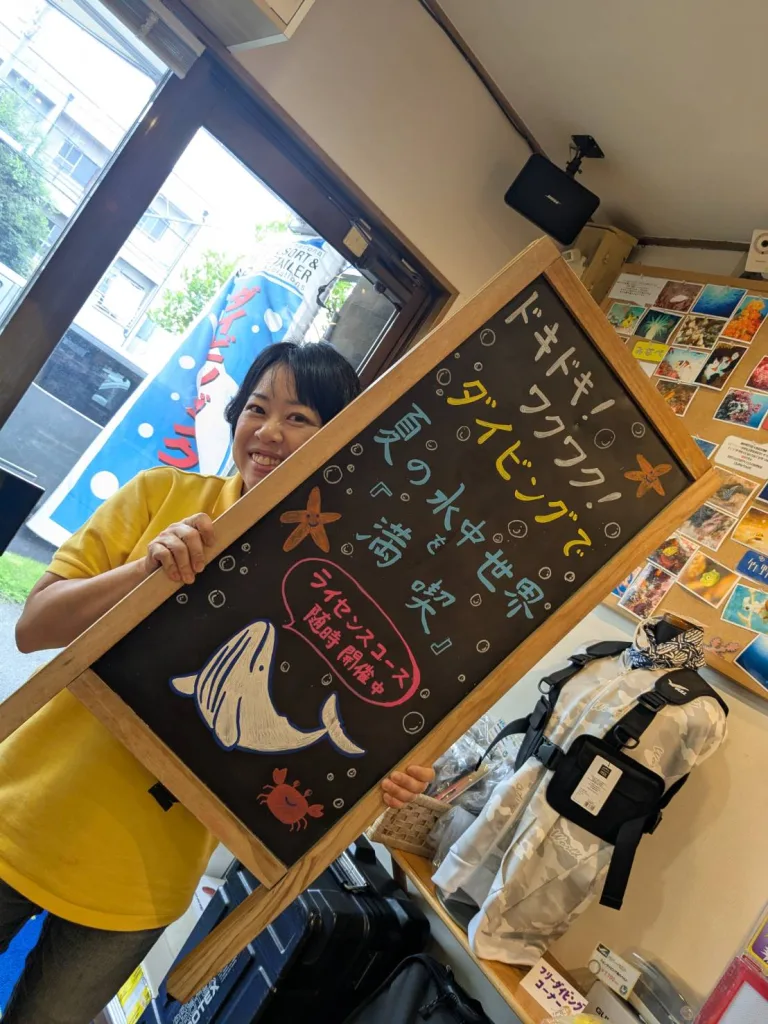 ドキドキ!
ワクワク!
ダイビングで
夏の水中世界
を
『満喫』
ライセンスコース
随時開催中
ダイビング
BOSE
フリーダイビング
コーナー